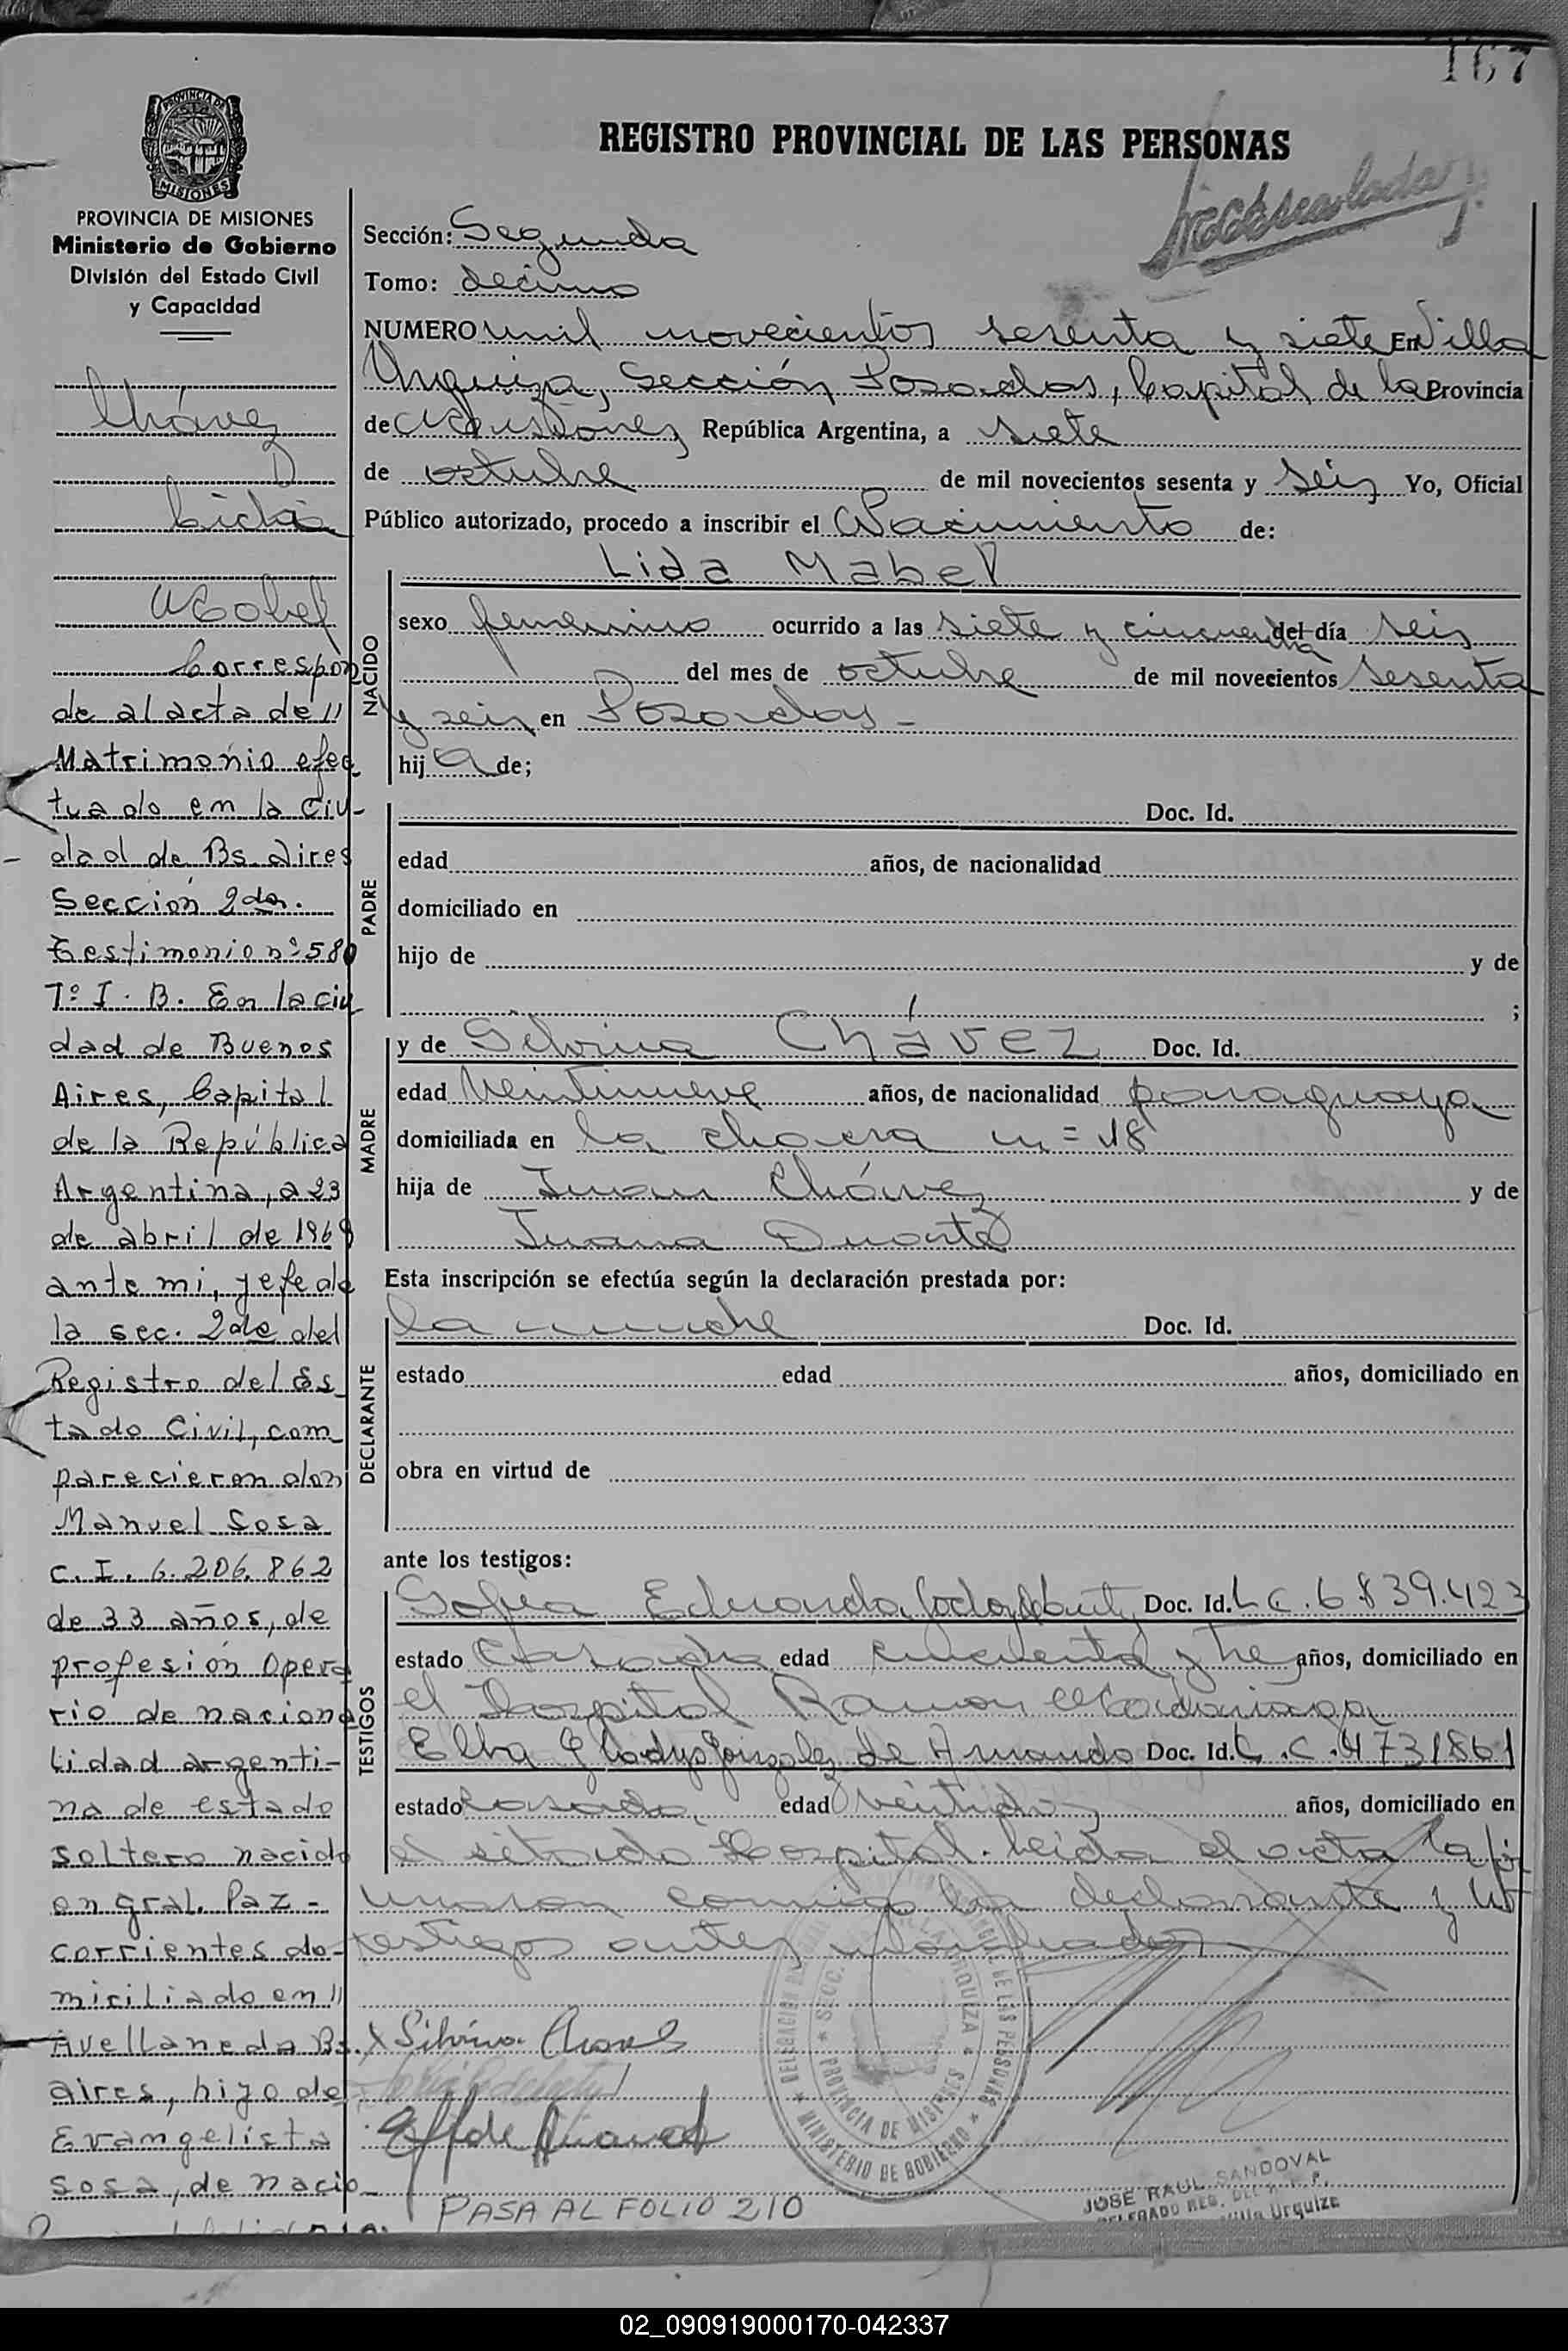 167
REGISTRO PROVINCIAL DE LAS PERSONAS
PROVINCIA DE
MISIONES
PROVINCIA DE MISIONES
Ministerio de Gobierno
División del Estado Civil
y Capacidad
Chávez
Lida
Mabel
Correspon
de al acta de //
Matrimonio efec
tuado en la Ciu-
dad de Bs. Aires
Sección 2da.
Testimonio nº 580
Tº I. B. En la ciu
dad de Buenos
Aires, Capital
de la República
Argentina, a 23
de abril de 1969
ante mi, jefe de
la sec. 2da del
Registro del Es
tado Civil, com
parecieron don
Manuel Sosa
C.I. 6.206.862
de 33 años, de
profesión Opera
rio de naciona
lidad argenti-
na de estado
soltero nacido
en gral. Paz -
corrientes do-
miciliado en //
Avellaneda Bs.
aires, hijo de
Evangelista
Sosa, de nacio-
Sección: Segunda
Tomo: décimo
NUMERO mil novecientos sesenta y siete En Villa
Urquiza, Sección Posadas, Capital de la Provincia
de Misiones República Argentina, a siete
de octubre de mil novecientos sesenta y seis Yo, Oficial
Público autorizado, procedo a inscribir el Nacimiento de:
NACIDO
Lida Mabel
sexo femenino ocurrido a las siete y cincuenta del día seis
del mes de octubre de mil novecientos sesenta
y seis en Posadas -
hija de;
PADRE
Doc. Id.
edad años, de nacionalidad
domiciliado en
hijo de y de
;
MADRE
y de Silvina Chávez Doc. Id.
edad veintinueve años, de nacionalidad paraguaya
domiciliada en la chacra nº 18
hija de Juan Chávez y de
Juana Duarte
Esta inscripción se efectúa según la declaración prestada por:
DECLARANTE
la madre Doc. Id.
estado edad años, domiciliado en
obra en virtud de
ante los testigos:
TESTIGOS
Sofía Eduarda Godoy de Doc. Id. L.C. 6.839.423
estado casada edad cincuenta y tres años, domiciliado en
el Hospital Ramon Madariaga
Elba Gladys Gonzalez de Amando Doc. Id. L.C. 4731861
estado casada edad veintidos años, domiciliado en
el sitado Hospital. Leida el acta la fir
maron conmigo la declarante y los
testigos antes nombrados
Silvina Chavez
PASA AL FOLIO 210
MINISTERIO DE GOBIERNO
PROVINCIA DE MISIONES
JOSE RAUL SANDOVAL
DELEGADO REG. DE
Villa Urquiza
02_090919000170-042337